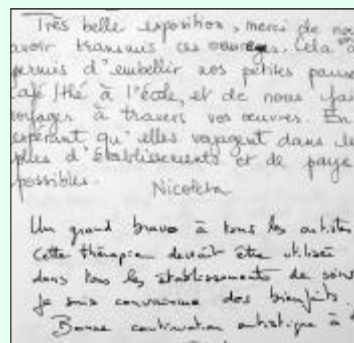 Très belle exposition, merci de nous
avoir transmis ces ouvrages. Cela a
permis d'embellir nos petites pauses
café/thé à l'école, et de nous faire
voyager à travers vos œuvres. En
espérant qu'elles voyagent dans le
plus d'établissements et de pays
possibles.
Nicoleta
Un grand bravo à tous les artistes
cette thérapie devrait être utilisée
dans tous les établissements de soins
je suis convaincue des bienfaits.
Bonne continuation artistique à